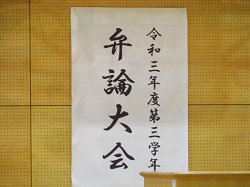 令和三年度第三学年
弁論大会